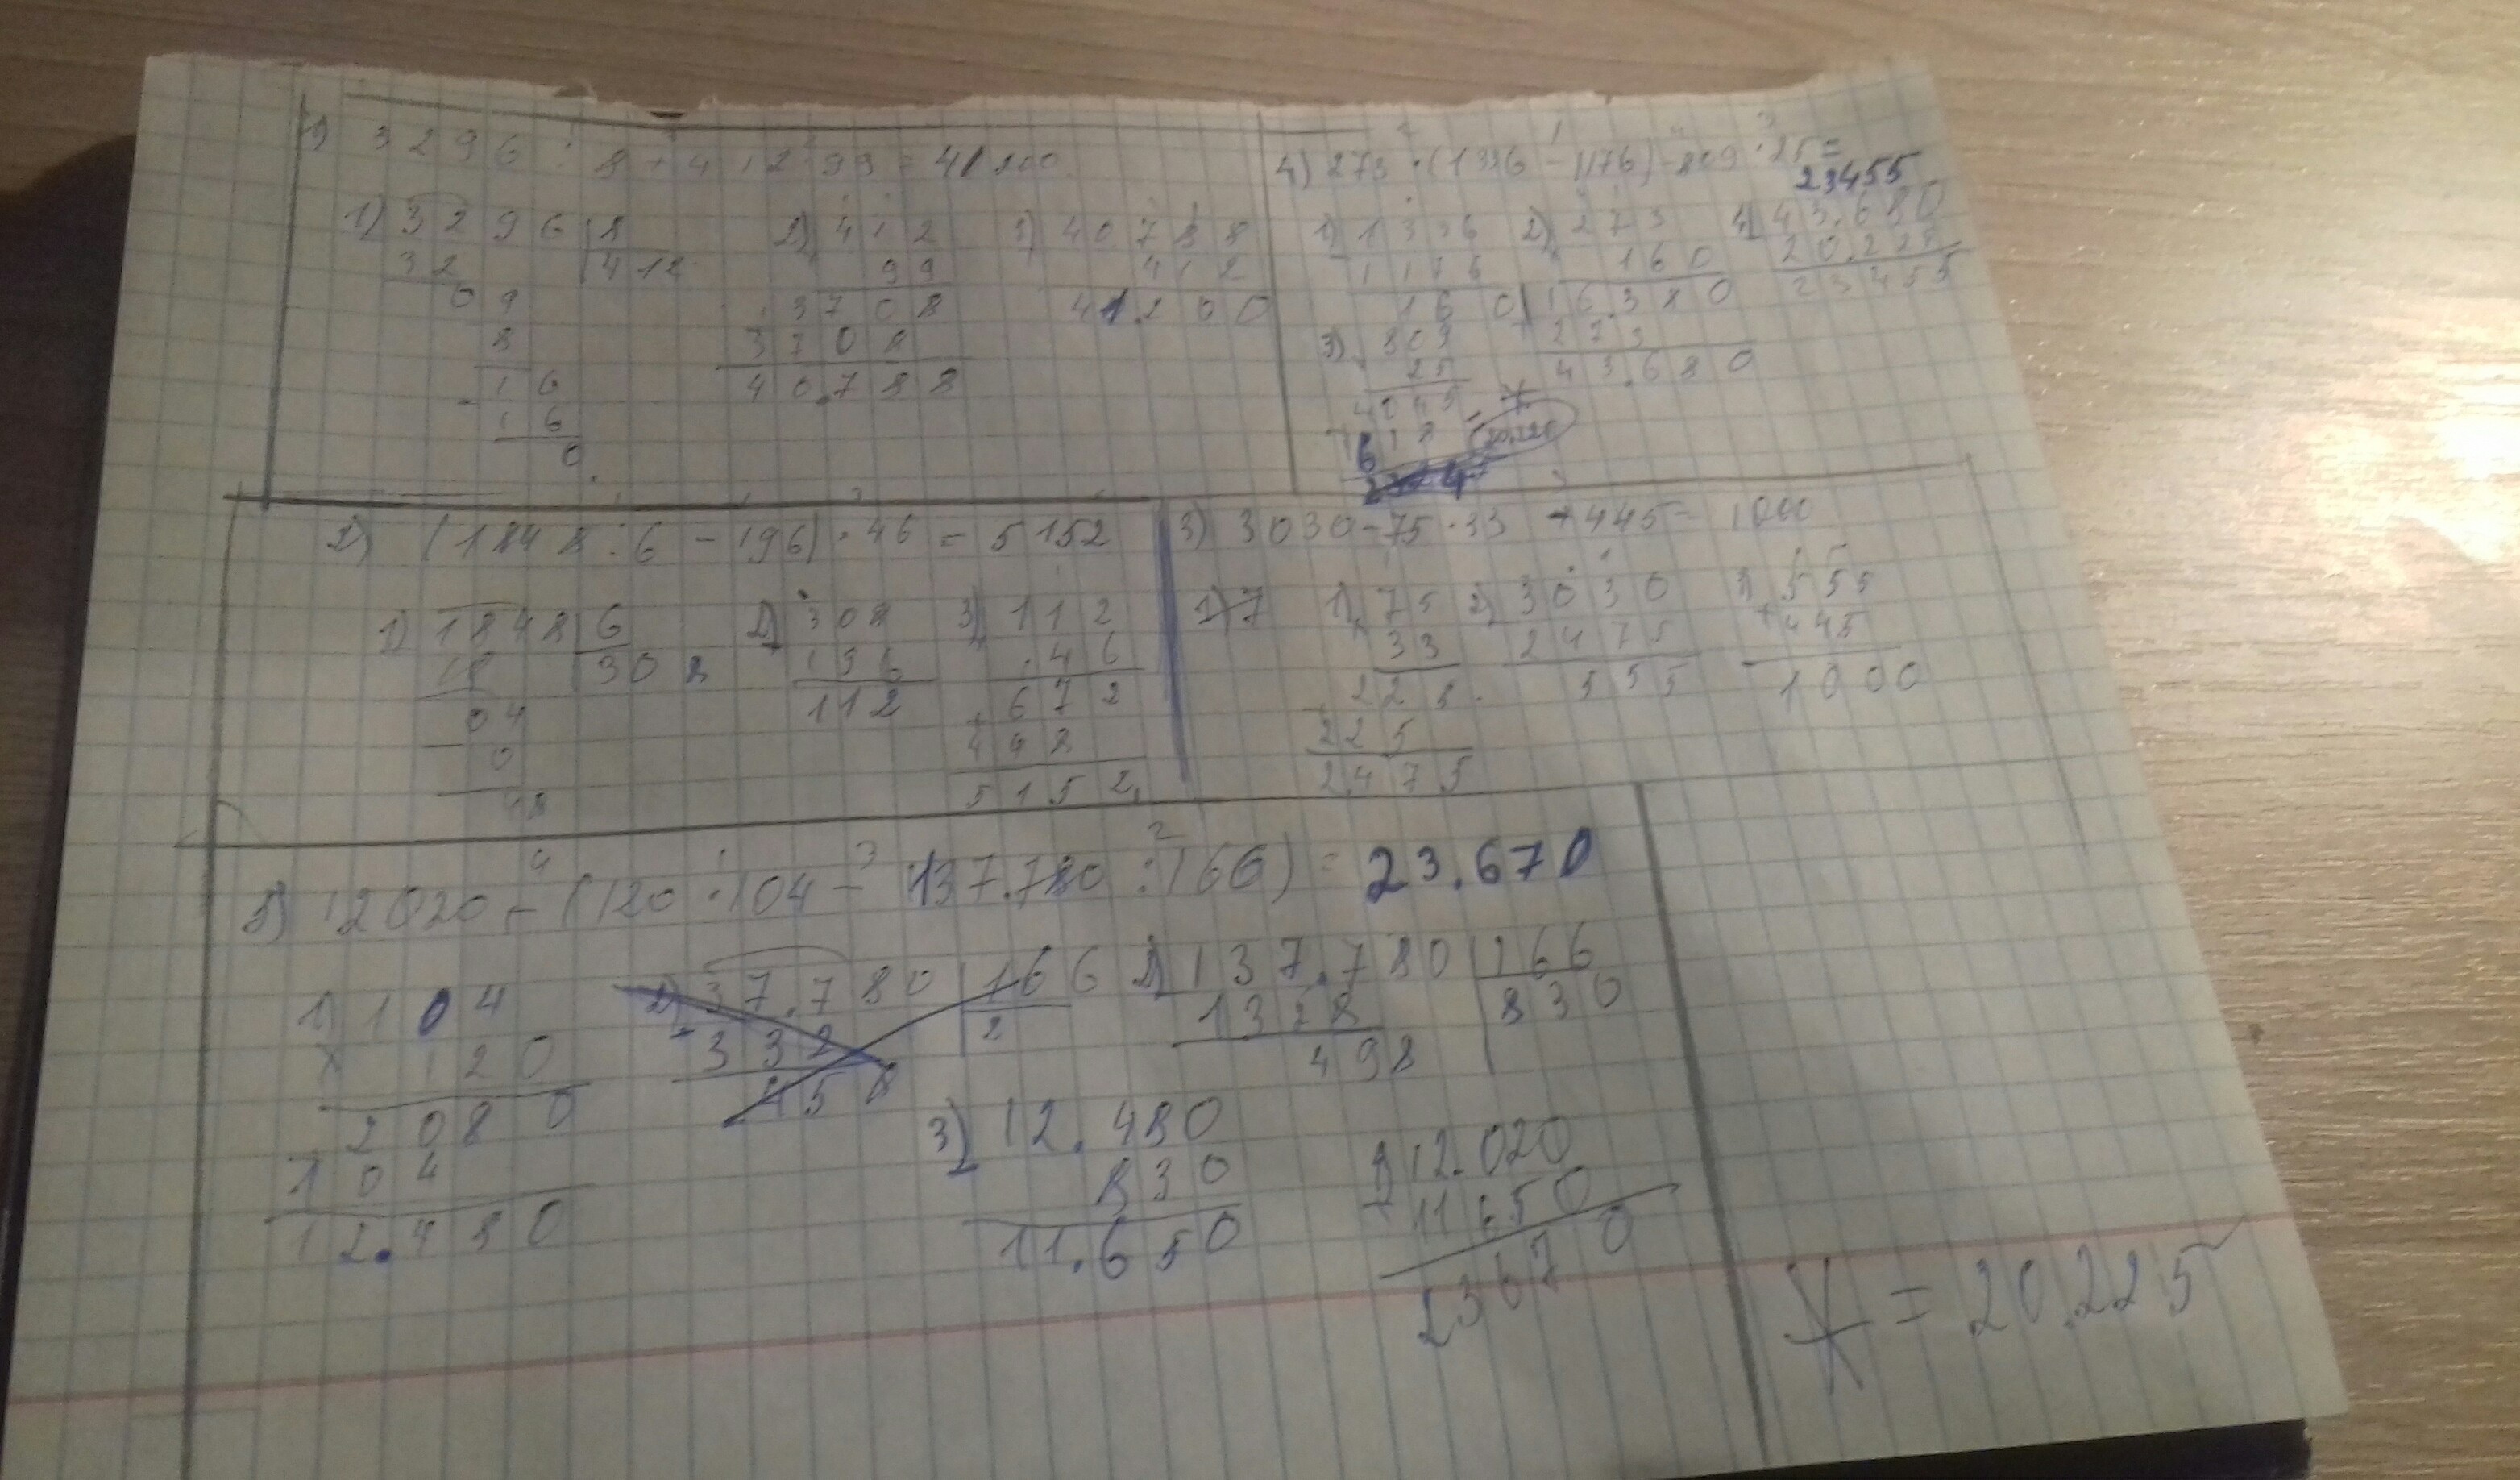 1) 3296 : 8 + 412 · 99 = 41200
1) 3296 8
32 412
09
8
16
- 16
0
2) 412
99
3708
3708
40.788
3) 40788
412
41.200
4) 273 · (1336 - 1176) - 809 · 25 =
23455
1) 1336
1176
160
2) 273
160
16.380
273
43.680
3) 809
25
4045
+ 618
4) 43.680
20.225
23455
2) (1848 : 6 - 196) · 46 = 5152
1) 1848 6
18 308
04
0
48
2) 308
196
112
3) 112
46
672
+ 448
5152
3) 3030 - 75 · 33 + 445 = 1000
1) 75
33
225
225
2475
2) 3030
2475
555
3) 555
+ 445
1000
5) 12020 + (120 · 104 - 137.780 : 166) = 23.670
1) 104
x 120
2080
104
12.480
2) 37.780 166
- 332 2
458
2) 137.780 166
1328 830
498
3) 12.480
830
11.650
4) 12.020
+ 11650
23670
X = 20.225